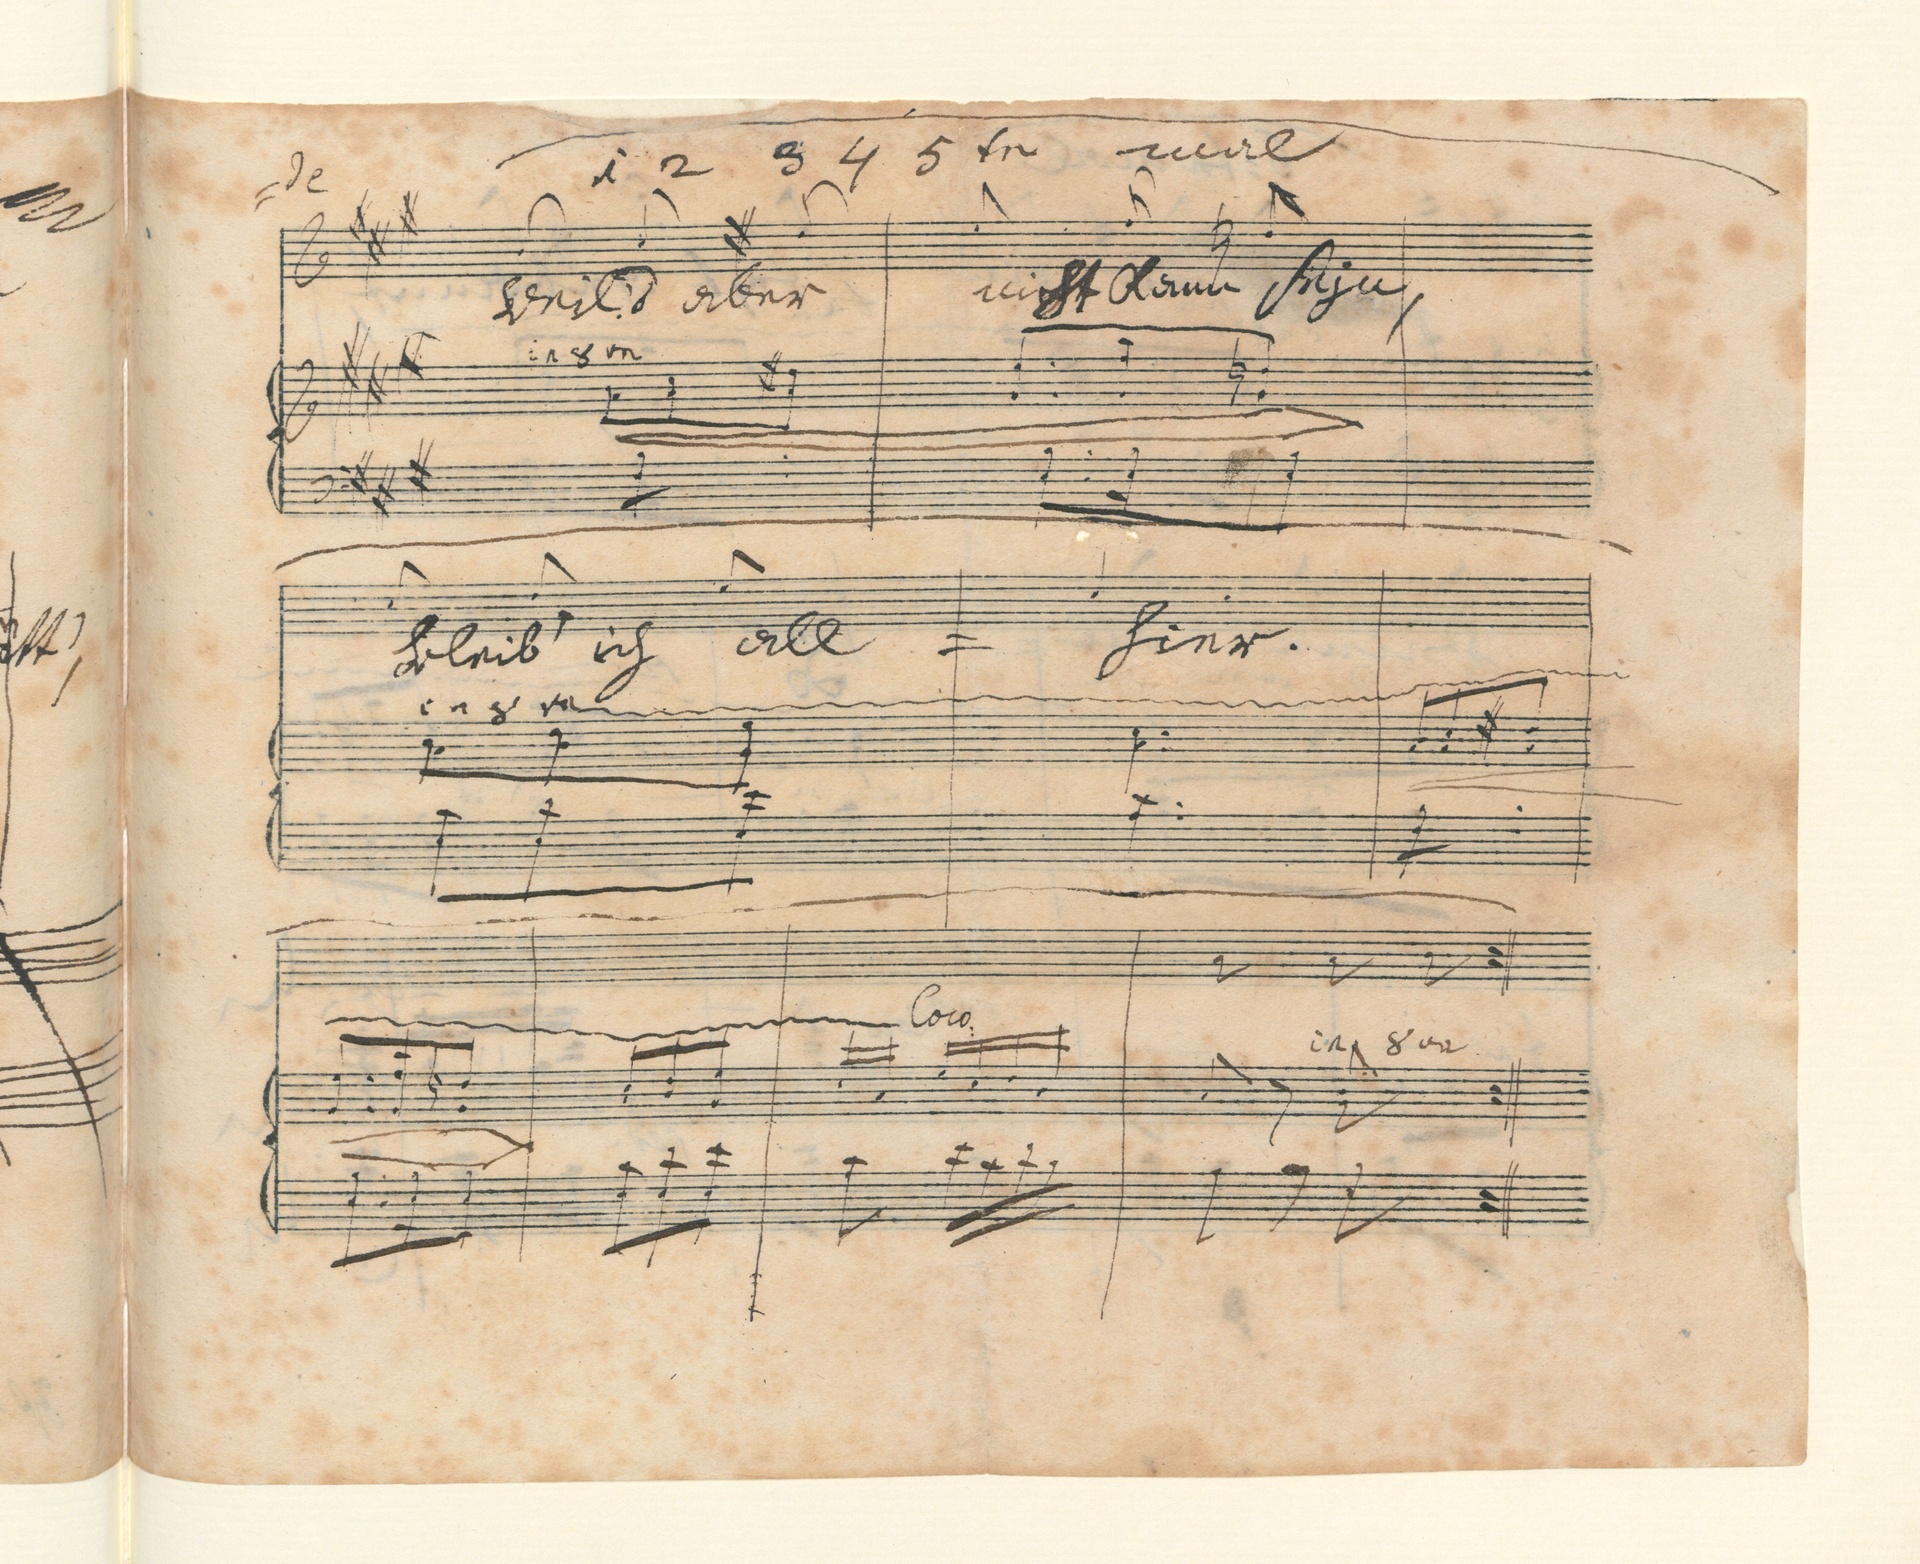 =de
1 2 3 4 5tn mal
weil's aber nicht kann seyn,
in 8va
bleib' ich all = hier.
in 8va
loco
in 8va